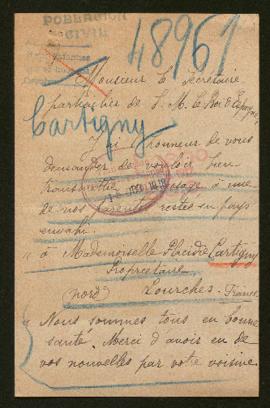 POBLACION
CIVIL
48961
Monsieur le Secrétaire
particulier de S. M. le Roi d'Espagne
Cartigny
J'ai l'honneur de vous
demander de vouloir bien
transmettre message à une
de nos parentes restée en pays
envahi.
à Mademoiselle Placidie Cartigny
Propriétaire
Nord Lourches France
Nous sommes tous en bonne
santé. Merci d'avoir eu de
vos nouvelles par votre voisine.